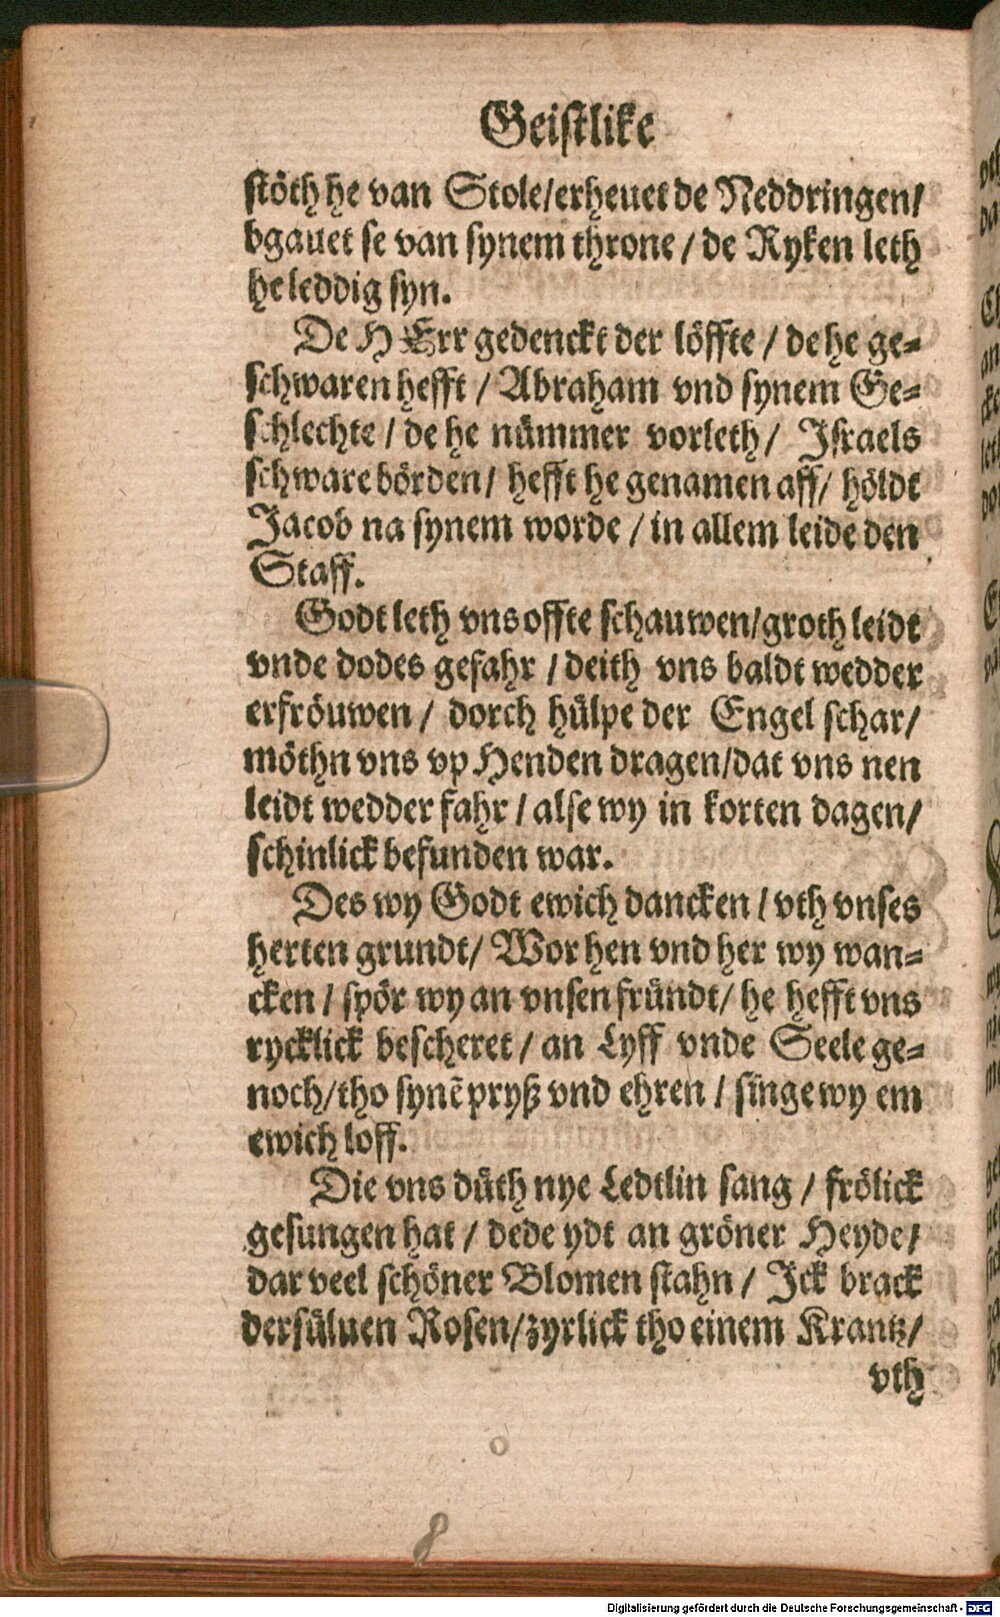 Geistlike
stöth he van Stole/erheuet de Neddringen/
bgauet se van synem throne / de Ryken leth
he leddig syn.
De HErr gedenckt der löffte / de he ge-
schwaren hefft / Abraham vnd synem Ge-
schlechte / de he nümmer vorleth / Israels
schware börden / hefft he genamen aff / höldt
Jacob na synem worde / in allem leide den
Staff.
Godt leth vns offte schauwen/groth leidt
vnde dodes gefahr / deith vns baldt wedder
erfröuwen / dorch hülpe der Engel schar/
möthn vns vp Henden dragen/dat vns nen
leidt wedder fahr / alse wy in korten dagen/
schinlick befunden war.
Des wy Godt ewich dancken / vth vnses
herten grundt/ Wor hen vnd her wy wan-
cken / spör wy an vnsen fründt/ he hefft vns
rycklick bescheret / an Lyff vnde Seele ge-
noch/tho synē pryß vnd ehren / singe wy em
ewich loff.
Die vns düth nye Ledtlin sang / frölick
gesungen hat / dede ydt an gröner Heyde/
dar veel schöner Blomen stahn / Ick brack
dersüluen Rosen/zyrlick tho einem Krantz/
vth
8
Digitalisierung gefördert durch die Deutsche Forschungsgemeinschaft - DFG